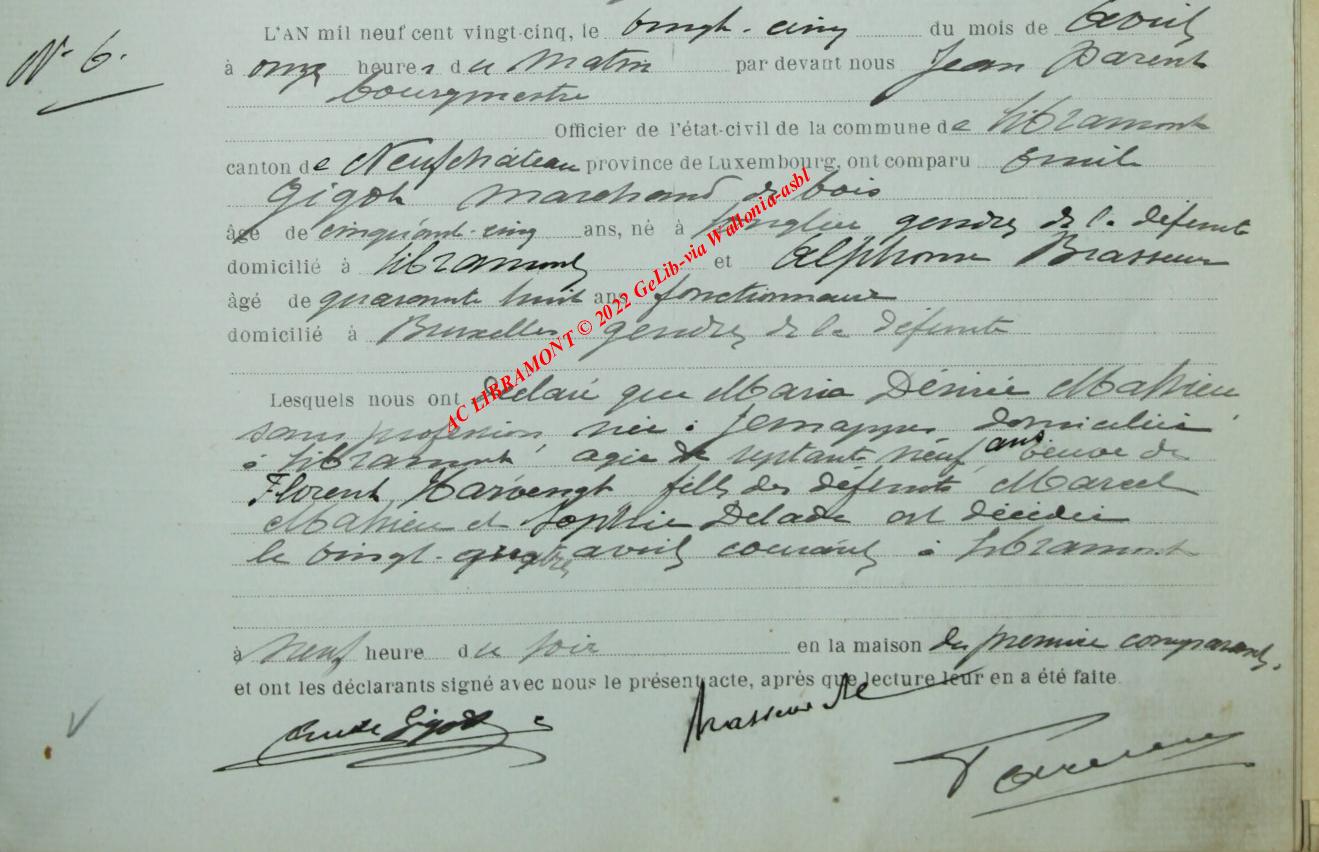 N° 6.
L'AN mil neuf cent vingt-cinq, le vingt-cinq du mois de Avril
à onze heures du matin par devant nous Jean Parent
bourgmestre
Officier de l'état-civil de la commune de Libramont
canton de Neufchâteau province de Luxembourg, ont comparu Emile
Gigot marchand de bois
âgé de cinquante-cinq ans, né à gendre de la défunte
domicilié à Libramont et Alphonse Brasseur
âgé de quarante huit ans fonctionnaire
domicilié à Bruxelles gendre de la défunte
Lesquels nous ont déclaré que Maria Désirée Mathieu
sans profession née à Jemappes domiciliée
à Libramont, agée de septante neuf ans veuve de
Florent Harvengt fille des défunts Marcel
Mathieu et Sophie est décédée
le vingt-quatre avril courant à Libramont
à neuf heure du soir en la maison du premier comparant.
et ont les déclarants signé avec nous le présent acte, après que lecture leur en a été faite.
Emile Gigot Brasseur Al
Parent
AC LIBRAMONT © 2022 GeLib-via Wallonia-asbl